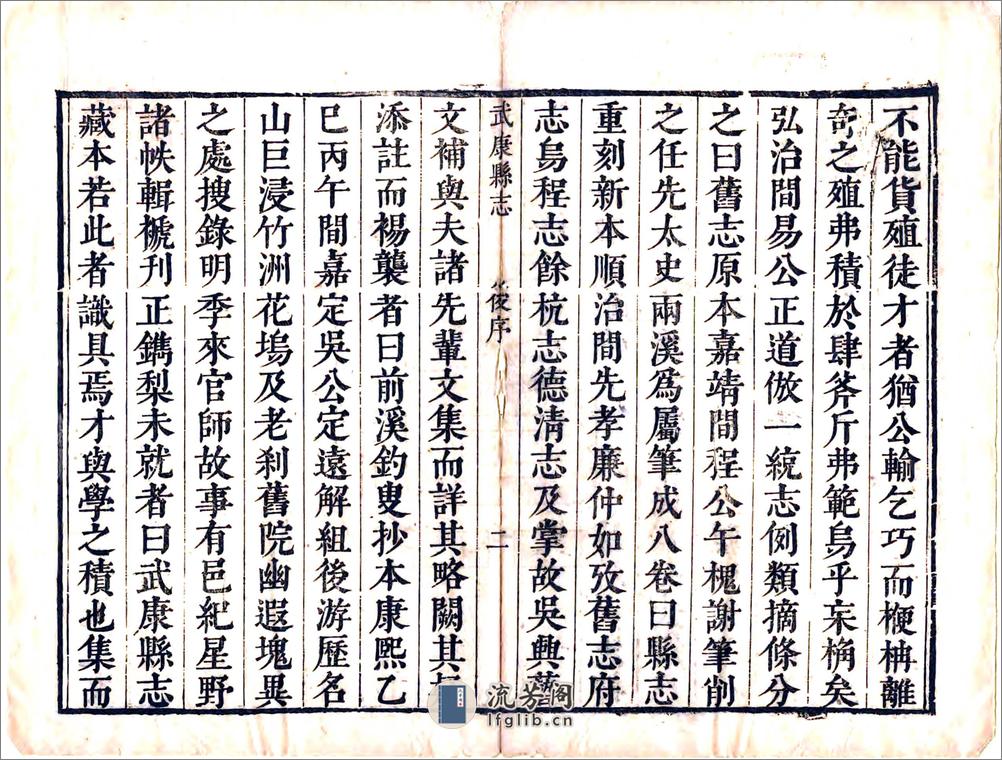 不能貨殖徒才者猶公輸乞巧而楩柟離
奇之殖弗積於肆斧斤弗範烏乎宋桷矣
弘治間易公正道倣一統志例類摘條分
之曰舊志原本嘉靖間程公午槐謝筆削
之任先太史兩溪為屬筆成八卷曰縣志
重刻新本順治間先孝廉仲如攷舊志府
志烏程志餘杭志德清志及掌故吳興藝
武康縣志 俊序 二
文補與夫諸先輩文集而詳其略闕其
添註而裼襲者曰前溪釣叟抄本康熙乙
巳丙午間嘉定吳公定遠解組後游歷名
山巨浸竹洲花塢及老刹舊院幽遐塊異
之處搜錄明季來官師故事有邑紀星野
諸帙輯櫳刊正鐫梨未就者曰武康縣志
藏本若此者識具焉才與學之積也集而
流芳閣
lfglib.cn